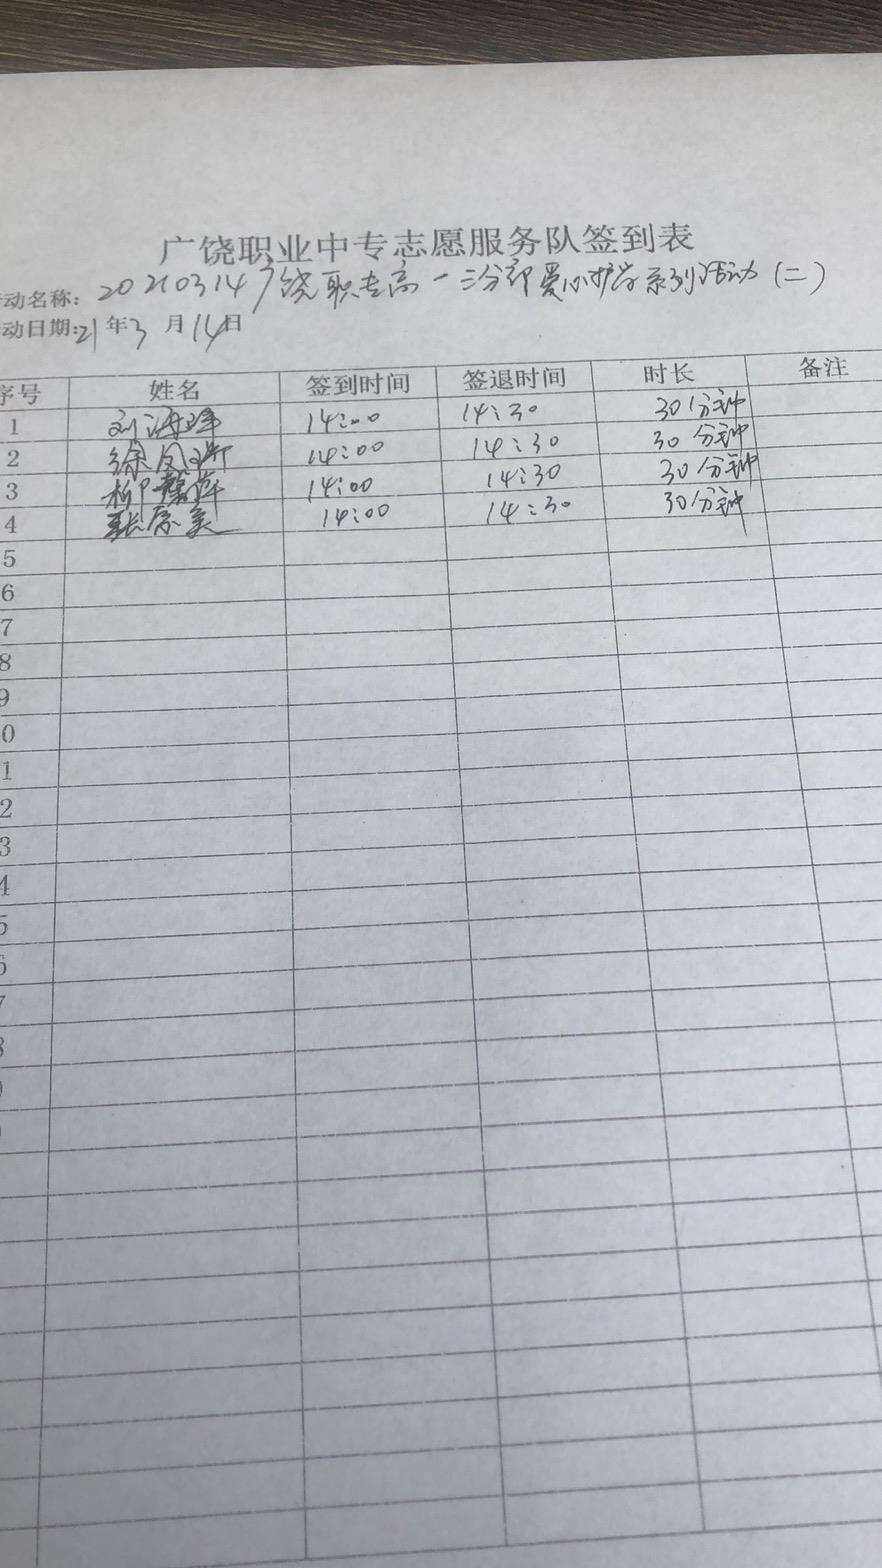 广饶职业中专志愿服务队签到表
动名称: 20210314广饶职专高一三分部爱心护学系列活动(二)
动日期:21年3月14日
序号 姓名 签到时间 签退时间 时长 备注
1 刘海峰 14:00 14:30 30分钟
2 徐凤 14:00 14:30 30分钟
3 柳 萍 14:00 14:30 30分钟
4 张 美 14:00 14:30 30分钟
5
6
7
8
9
0
1
2
3
4
5
6
7
8
9